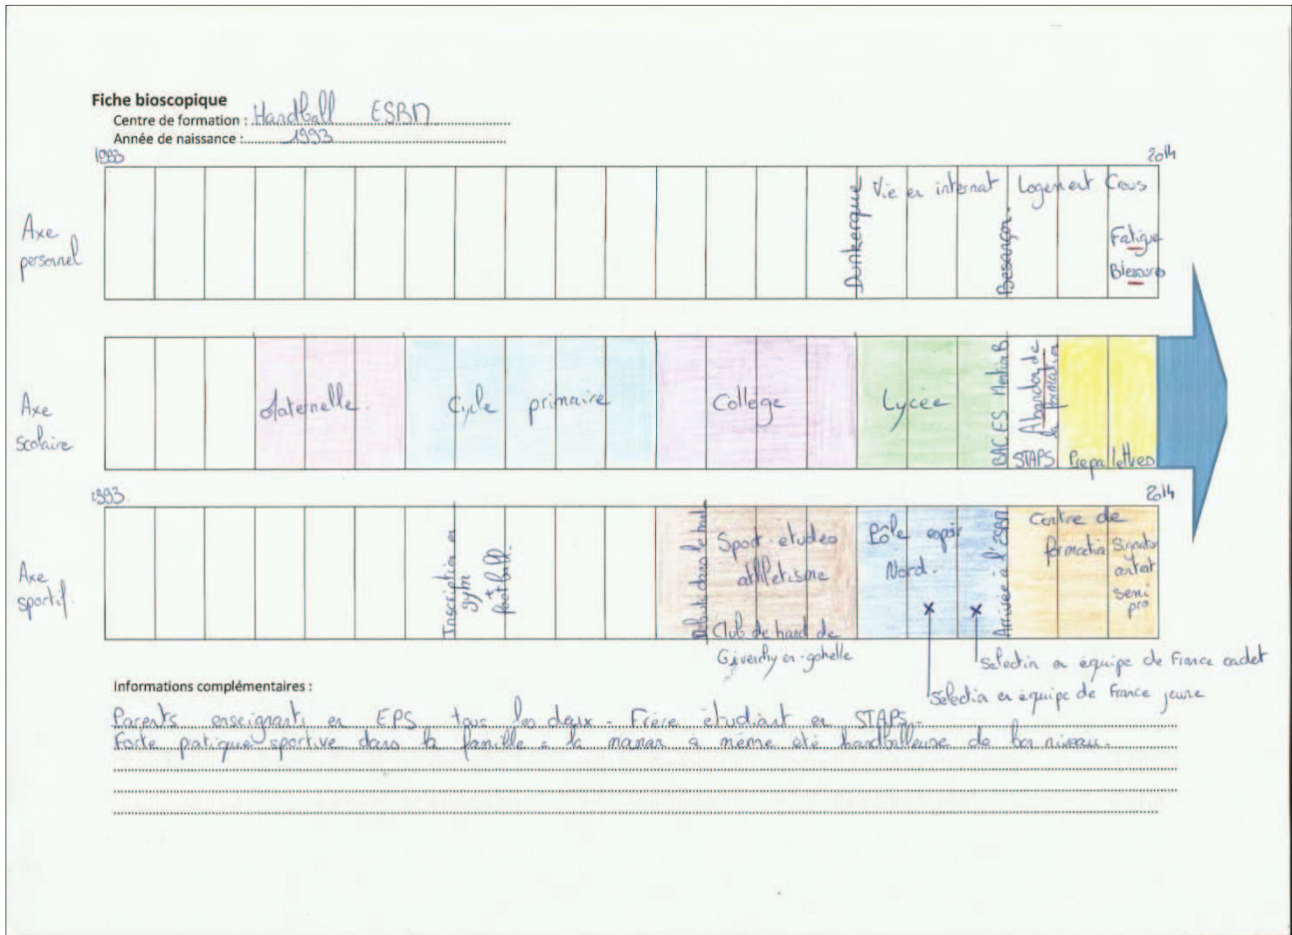 Fiche bioscopique
Centre de formation : Handball ESBM
Année de naissance : 1993
1993
2014
Axe personnel
Dunkerque
Vie en internat
Besançon.
Logement Crous
Fatigue
Blessures
Axe scolaire
Maternelle.
Cycle primaire
Collège
Lycée
BAC ES Mention B
Abandon de la formation
STAPS
Prepa lettres
1993
2014
Axe sportif.
Inscription en gym + football.
Débuts dans le hand
Sport-etudes athlétisme
Club de hand de Givenchy-en-gohelle
Pôle espoir Nord.
Arrivée à l'ESBM
Centre de formation
Signature
contrat
semi
pro
Sélection en équipe de France cadet
Sélection en équipe de France jeune
Informations complémentaires :
Parents enseignants en EPS tous les deux - Frère étudiant en STAPS.
Forte pratique sportive dans la famille : la maman a même été handballeuse de bon niveau.